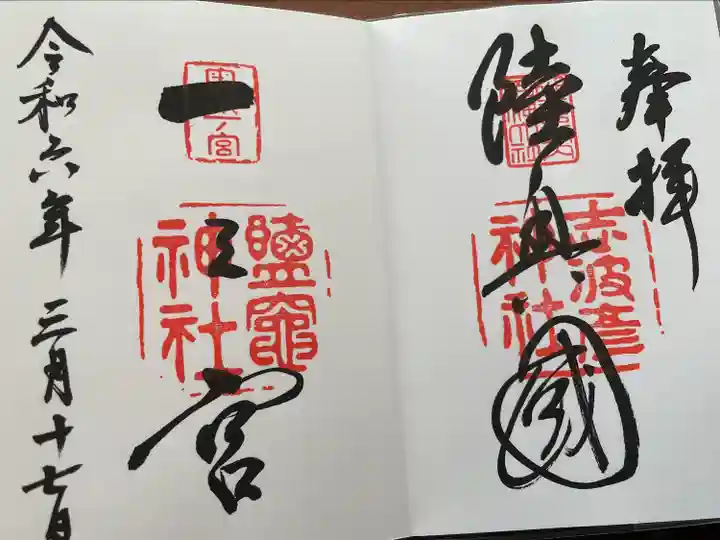 奉拝
陸奥國
志波彦
神社
一之宮
鹽竈
神社
令和六年三月十七日